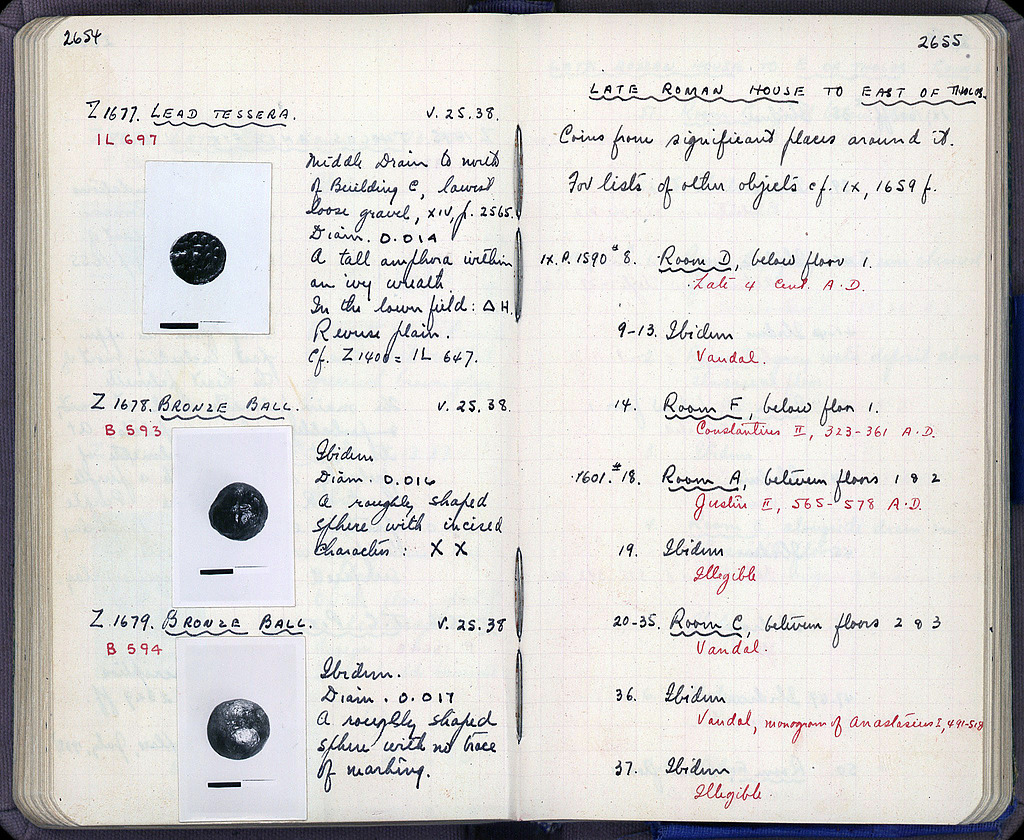 2654
Z 1677. LEAD TESSERA. V. 25. 38.
IL 697
Middle Drain to north
of Building C, lowest
loose gravel, XIV, p. 2565.
Diam. 0.014
A tall amphora within
an ivy wreath.
In the lower field: Δ H.
Reverse plain.
Cf. Z 1400 = IL 647.
Z 1678. BRONZE BALL. V. 25. 38.
B 593
Ibidem
Diam. 0.016
A roughly shaped
sphere with incised
characters: X X
Z 1679. BRONZE BALL. V. 25. 38
B 594
Ibidem.
Diam. 0.017
A roughly shaped
sphere with no trace
of marking.
2655
LATE ROMAN HOUSE TO EAST OF THOLOS.
Coins from significant places around it.
For lists of other objects cf. IX, 1659 f.
IX. P. 1590 # 8. Room D, below floor 1.
Late 4 Cent. A.D.
9-13. Ibidem
Vandal.
14. Room F, below floor 1.
Constantius II, 323-361 A.D.
1601. # 18. Room A, between floors 1 & 2
Justin II, 565-578 A.D.
19. Ibidem
Illegible
20-35. Room C, between floors 2 & 3
Vandal.
36. Ibidem
Vandal, monogram of Anastasius I, 491-518
37. Ibidem
Illegible.